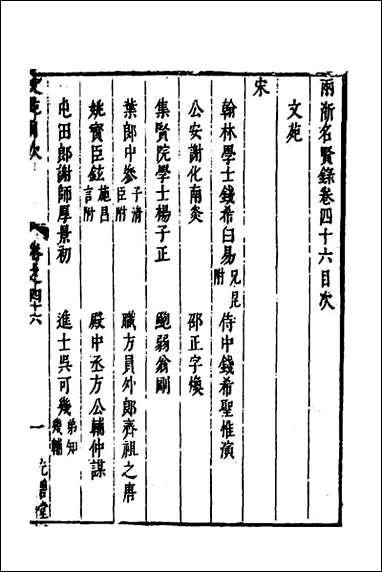 兩浙名賢錄卷四十六目次
文苑
宋
翰林學士錢希白易兄昆附 侍中錢希聖惟演
公安謝化南炎 邵正字煥
集賢院學士楊子正 鮑弱翁剛
葉郎中參子清臣附 職方員外郎齊祖之唐
姚寳臣鉉施昌言附 殿中丞方公輔仲謀
屯田郎謝師厚景初 進士吳可幾弟知幾輔
文苑目次 卷之四十六 一 光碧堂